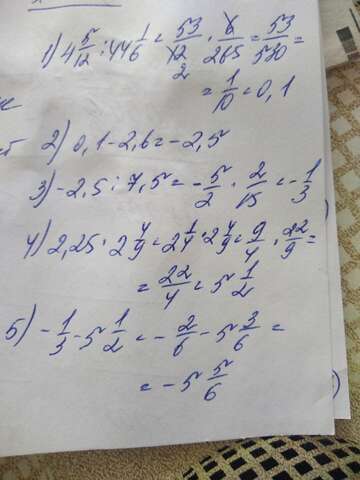 1) 4 5/12 : 44 1/6 = 53/12 · 6/265 = 53/530 =
= 1/10 = 0,1
2) 0,1 - 2,6 = - 2,5
3) - 2,5 : 7,5 = - 5/2 · 2/15 = - 1/3
4) 2,25 · 2 4/9 = 2 1/4 · 2 4/9 = 9/4 · 22/9 =
= 22/4 = 5 1/2
5) - 1/3 - 5 1/2 = - 2/6 - 5 3/6 =
= - 5 5/6